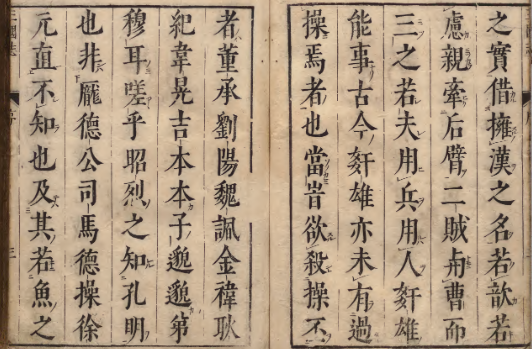 之實借擁漢之名若歆若
慮親牽后臂二賊曹而
三之若夫用兵用人奸雄
能事古今奸雄亦未有過
操焉者也當旹欲殺操不
者董承劉陽魏諷金禕耿
紀韋晃吉本本子邈邈第
穆耳嗟乎昭烈之知孔明
也非龐德公司馬德操徐
元直不知也及其若魚之
三國志
三